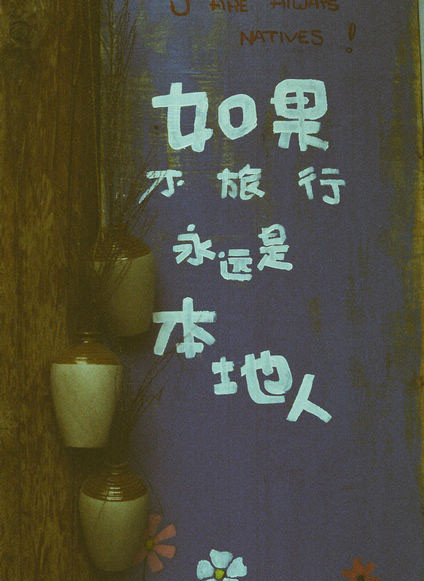 U ARE ALWAYS
NATIVES!
如果
不旅行
永远是
本地人